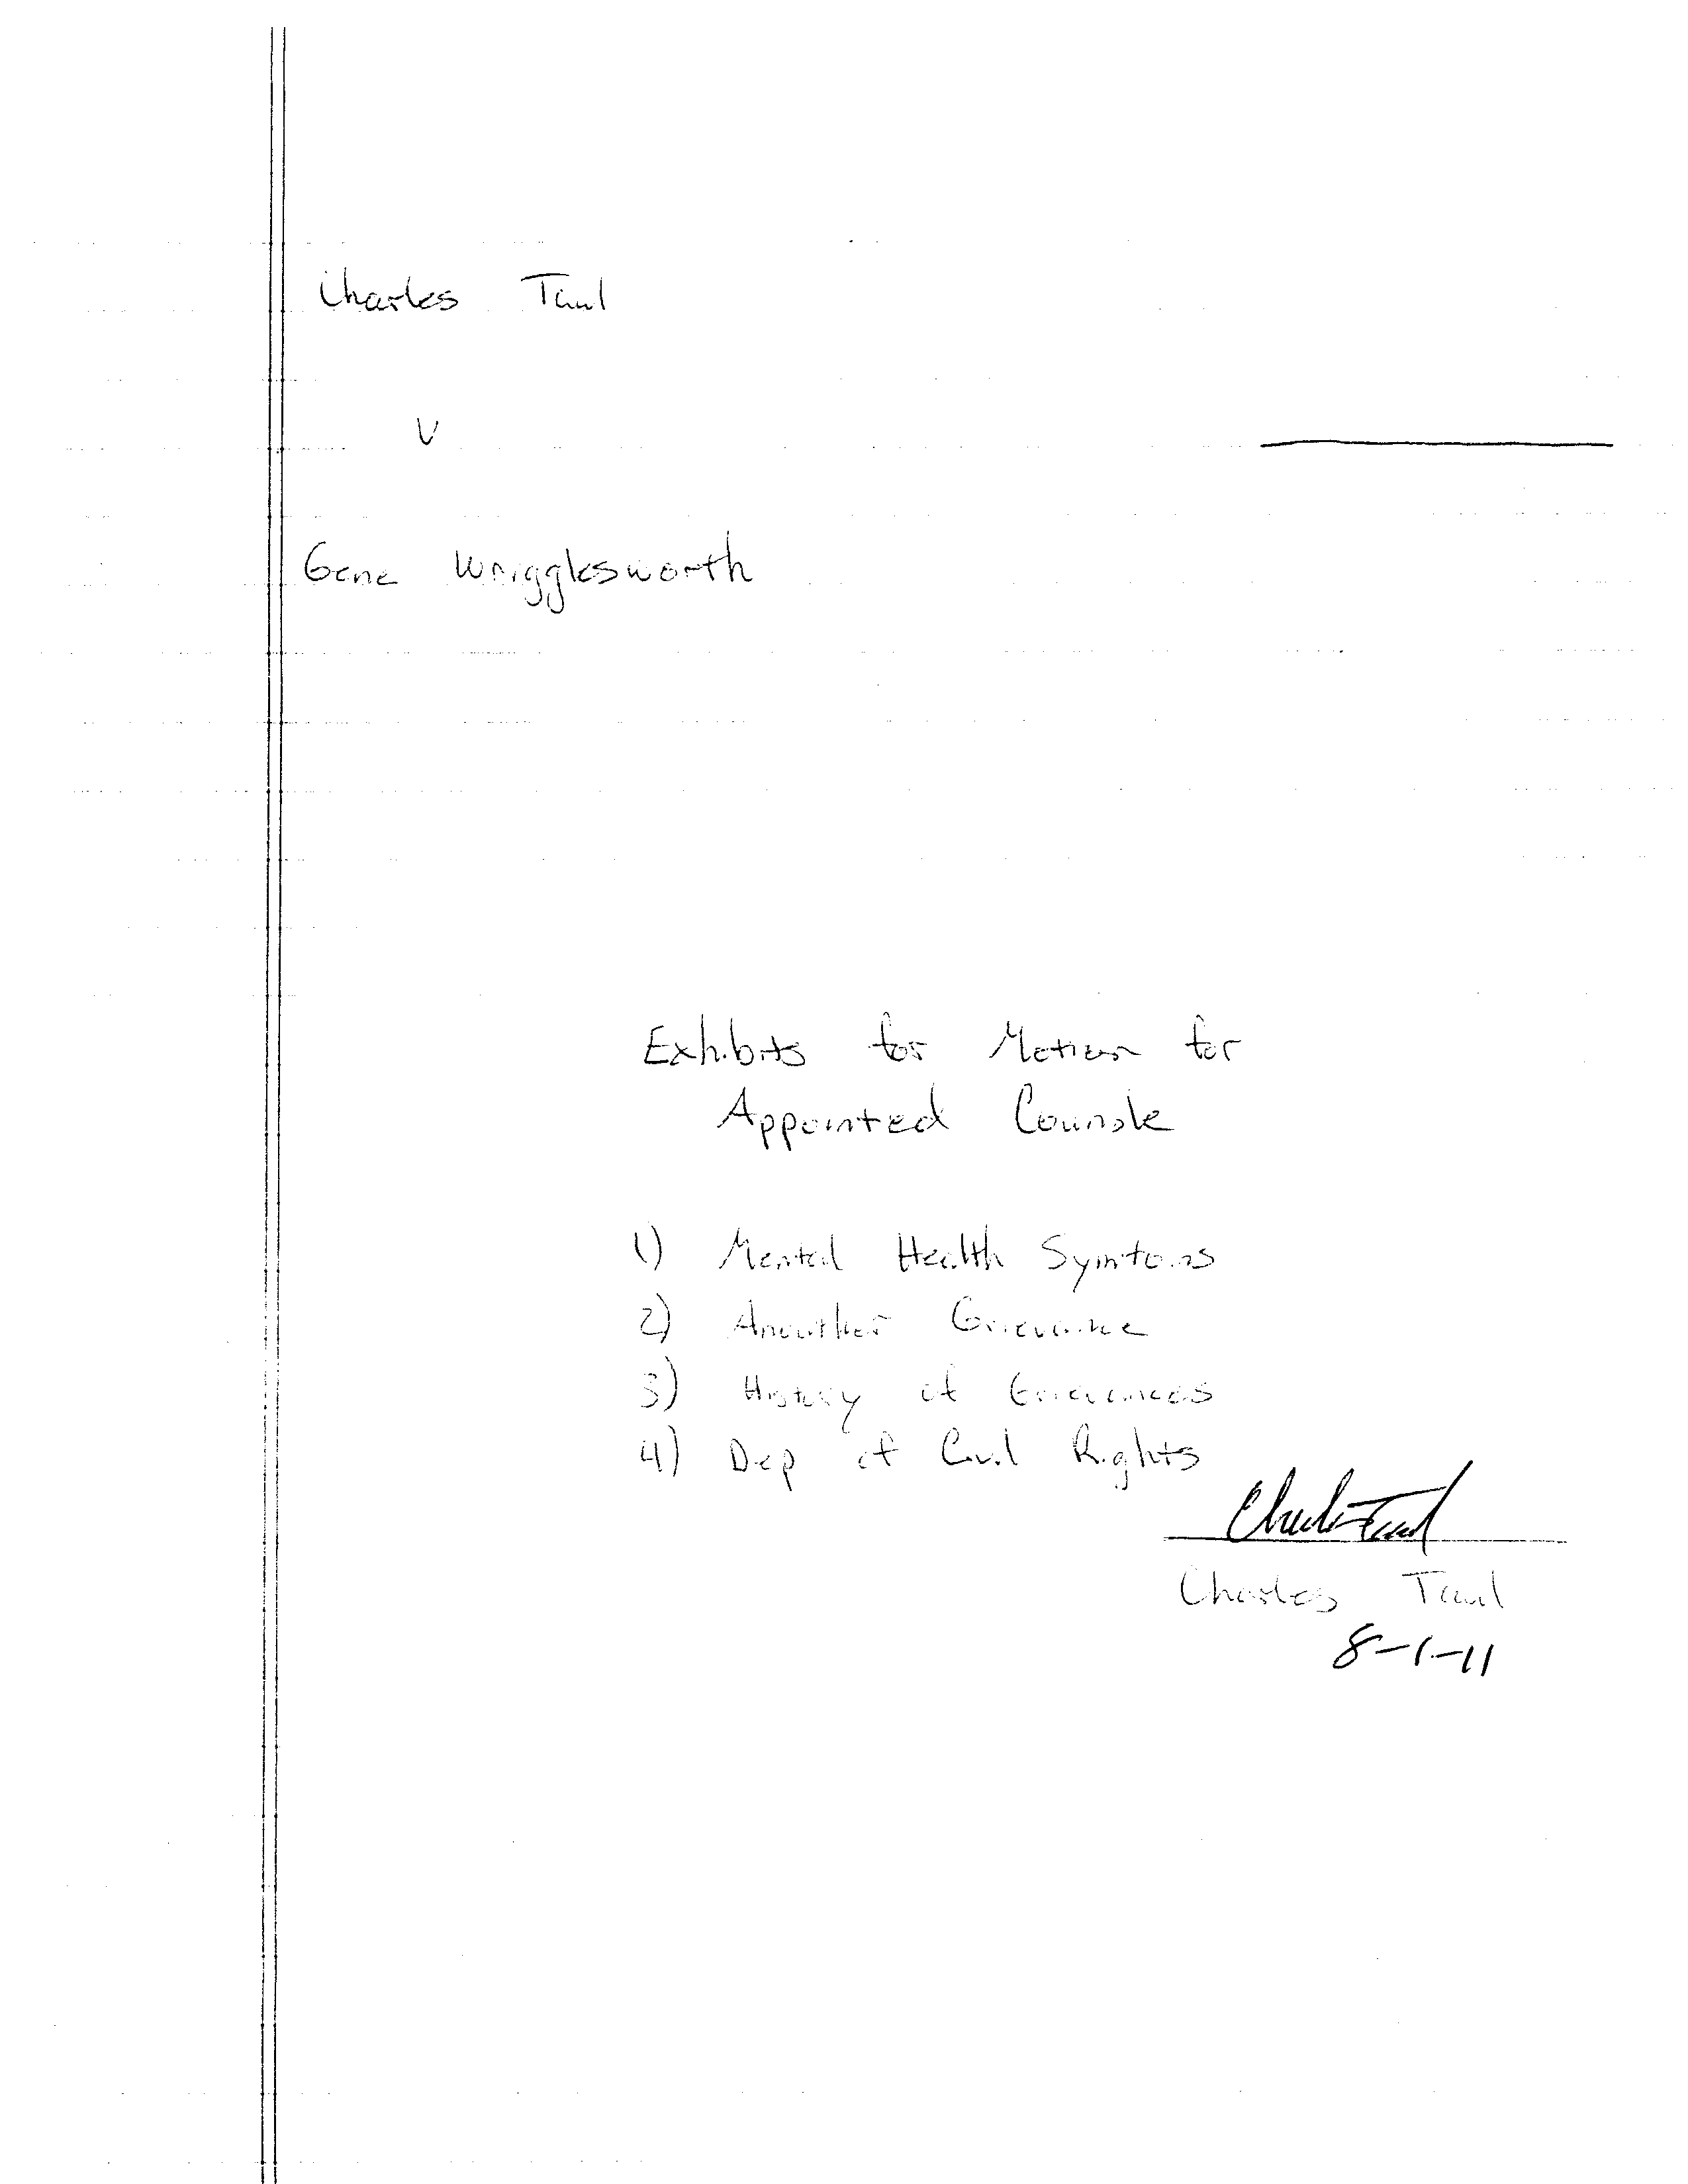 Charles Taul
V
Gene Wrigglesworth
Exhibits for Motion for
Appointed Counsle
1) Mental Health Symtoms
2) Anouther Grievance
3) History of Grievances
4) Dep of Civil Rights
Charles Taul
Charles Taul
8-1-11